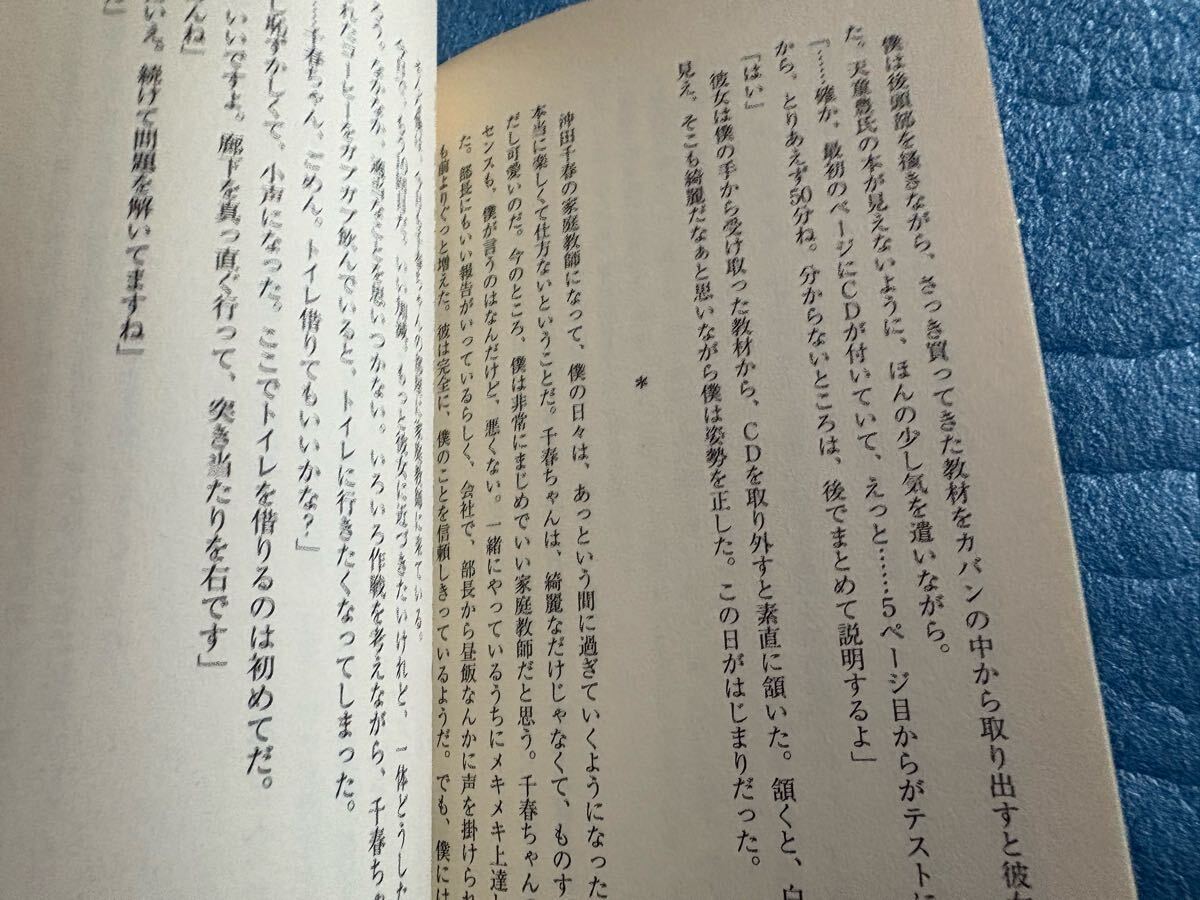 僕は後頭部を掻きながら、さっき買ってきた教材をカバンの中から取り出すと彼女
た。天童豊氏の本が見えないように、ほんの少し気を遣いながら。
「……確か、最初のページにCDが付いていて、えっと……5ページ目からがテストに
から、とりあえず50分ね。分からないところは、後でまとめて説明するよ」
「はい」
彼女は僕の手から受け取った教材から、CDを取り外すと素直に頷いた。頷くと、白
見え。そこも綺麗だなぁと思いながら僕は姿勢を正した。この日がはじまりだった。
*
沖田千春の家庭教師になって、僕の日々は、あっという間に過ぎていくようになった
本当に楽しくて仕方ないということだ。千春ちゃんは、綺麗なだけじゃなくて、ものす
だし可愛いのだ。今のところ、僕は非常にまじめでいい家庭教師だと思う。千春ちゃん
センスも、僕が言うのはなんだけど、悪くない。一緒にやっているうちにメキメキ上達
た。部長にもいい報告がいっているらしく、会社で、部長から昼飯なんかに声を掛けられ
も前よりぐっと増えた。彼は完全に、僕のことを信頼しきっているようだ。でも、僕には
家庭教師に来ている。
もっと彼女に近づきたいけれど、一体どうした
いつかない。いろいろ作戦を考えながら、千春ちゃ
れたコーヒーをガンガン飲んでいると、トイレに行きたくなってしまった。
……千春ちゃん、ごめん。トイレ借りてもいいかな?」
し恥ずかしくて、小声になった。ここでトイレを借りるのは初めてだ。
いいですよ。廊下を真っ直ぐ行って、突き当たりを右です」
んね」
いえ。続けて問題を解いてますね」